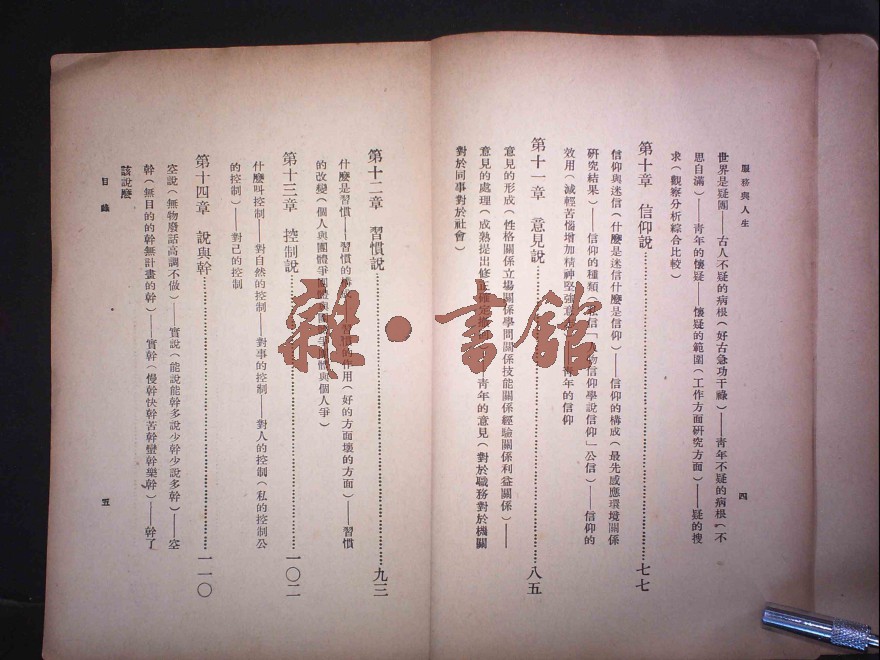 服務與人生
四
世界是疑團——古人不疑的病根(好古急功干祿)——青年不疑的病根(不
思自滿)——青年的懷疑——懷疑的範圍(工作方面研究方面)——疑的搜
求(觀察分析綜合比較)
第十章 信仰說……七七
信仰與迷信(什麼是迷信什麼是信仰)——信仰的構成(最先感應環境關係
研究結果)——信仰的種類(私信「人物信仰學說信仰」公信)——信仰的
效用(減輕苦惱增加精神堅強意 青年的信仰
第十一章 意見說……八五
意見的形成(性格關係立場關係學問關係技能關係經驗關係利益關係)——
意見的處理(成熟提出修正確定 ——青年的意見(對於職務對於機關
對於同事對於社會)
第十二章 習慣說……九三
什麼是習慣——習慣的構成——習慣的作用(好的方面壞的方面)——習慣
的改變(個人與團體爭團體與 團體與個人爭)
第十三章 控制說……一〇二
什麼叫控制——對自然的控制——對事的控制——對人的控制(私的控制公
的控制)——對己的控制
第十四章 說與幹……一一〇
空說(無物廢話高調不做)——實說(能說能幹多說少幹少說多幹)——空
幹(無目的的幹無計畫的幹)——實幹(慢幹快幹苦幹蠻幹樂幹)——幹了
該說麼
目錄
五
雜·書館